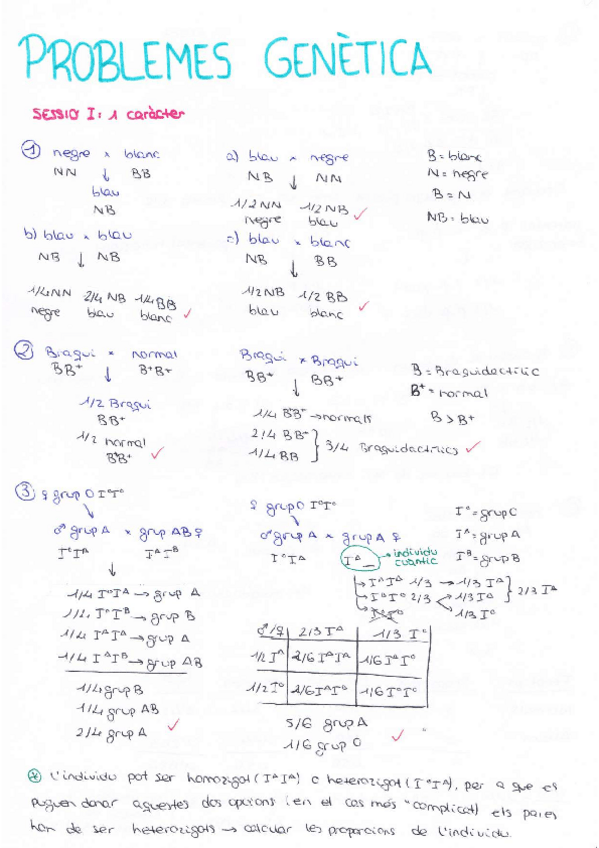 PROBLEMES GENÈTICA
SESSIO I: 1 caràcter
① negre × blanc
NN ↓ BB
blau
NB
a) blau × negre
NB ↓ NN
1/2 NN 1/2 NB
negre blau ✓
B = blanc
N = negre
B = N
NB = blau
b) blau × blau
NB ↓ NB
1/4 NN 2/4 NB 1/4 BB
negre blau blanc ✓
c) blau × blanc
NB ↓ BB
1/2 NB 1/2 BB
blau blanc ✓
② Bragui × normal
BB⁺ ↓ B⁺B⁺
1/2 Bragui
BB⁺
1/2 normal
B⁺B⁺ ✓
Bragui × Bragui
BB⁺ ↓ BB⁺
1/4 B⁺B⁺ → normals
2/4 BB⁺
1/4 BB } 3/4 Braguidactílics ✓
B = Braguidactílic
B⁺ = normal
B > B⁺
③ ♀ grup O I°I°
♂ grup A × grup AB ♀
I°Iᴬ IᴬIᴮ
↓
1/4 I°Iᴬ → grup A
1/4 I°Iᴮ → grup B
1/4 IᴬIᴬ → grup A
1/4 IᴬIᴮ → grup AB
1/4 grup B
1/4 grup AB
2/4 grup A ✓
♀ grup O I°I°
♂ grup A × grup A ♀
I°Iᴬ Iᴬ_ → individu
cuàntic
I° = grup O
Iᴬ = grup A
Iᴮ = grup B
→ IᴬIᴬ 1/3 → 1/3 Iᴬ
→ IᴬI° 2/3 → 1/3 Iᴬ } 2/3 Iᴬ
I°I° 1/3 I°
♂/♀ 2/3 Iᴬ 1/3 I°
1/2 Iᴬ 2/6 IᴬIᴬ 1/6 IᴬI°
1/2 I° 2/6 IᴬI° 1/6 I°I°
5/6 grup A
1/6 grup O ✓
* L'individu pot ser homozigot (IᴬIᴬ) o heterozigot (I°Iᴬ), per a que es
puguen donar aquestes dos opcions (en el cas més "complicat) els pares
han de ser heterozigots → calcular les proporcions de l'individu.